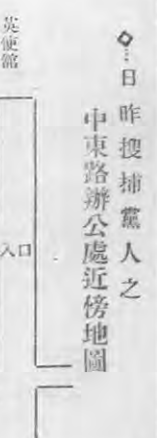 ◇…日昨搜捕黨人之
中東路辦公處近傍地圖
入口
英使館